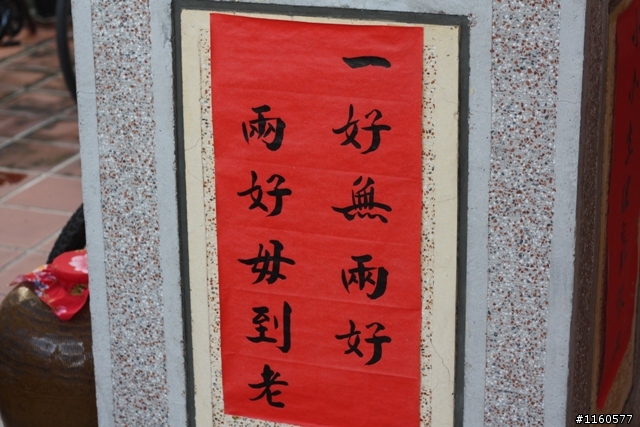 一好無兩好
兩好毋到老
#1160577